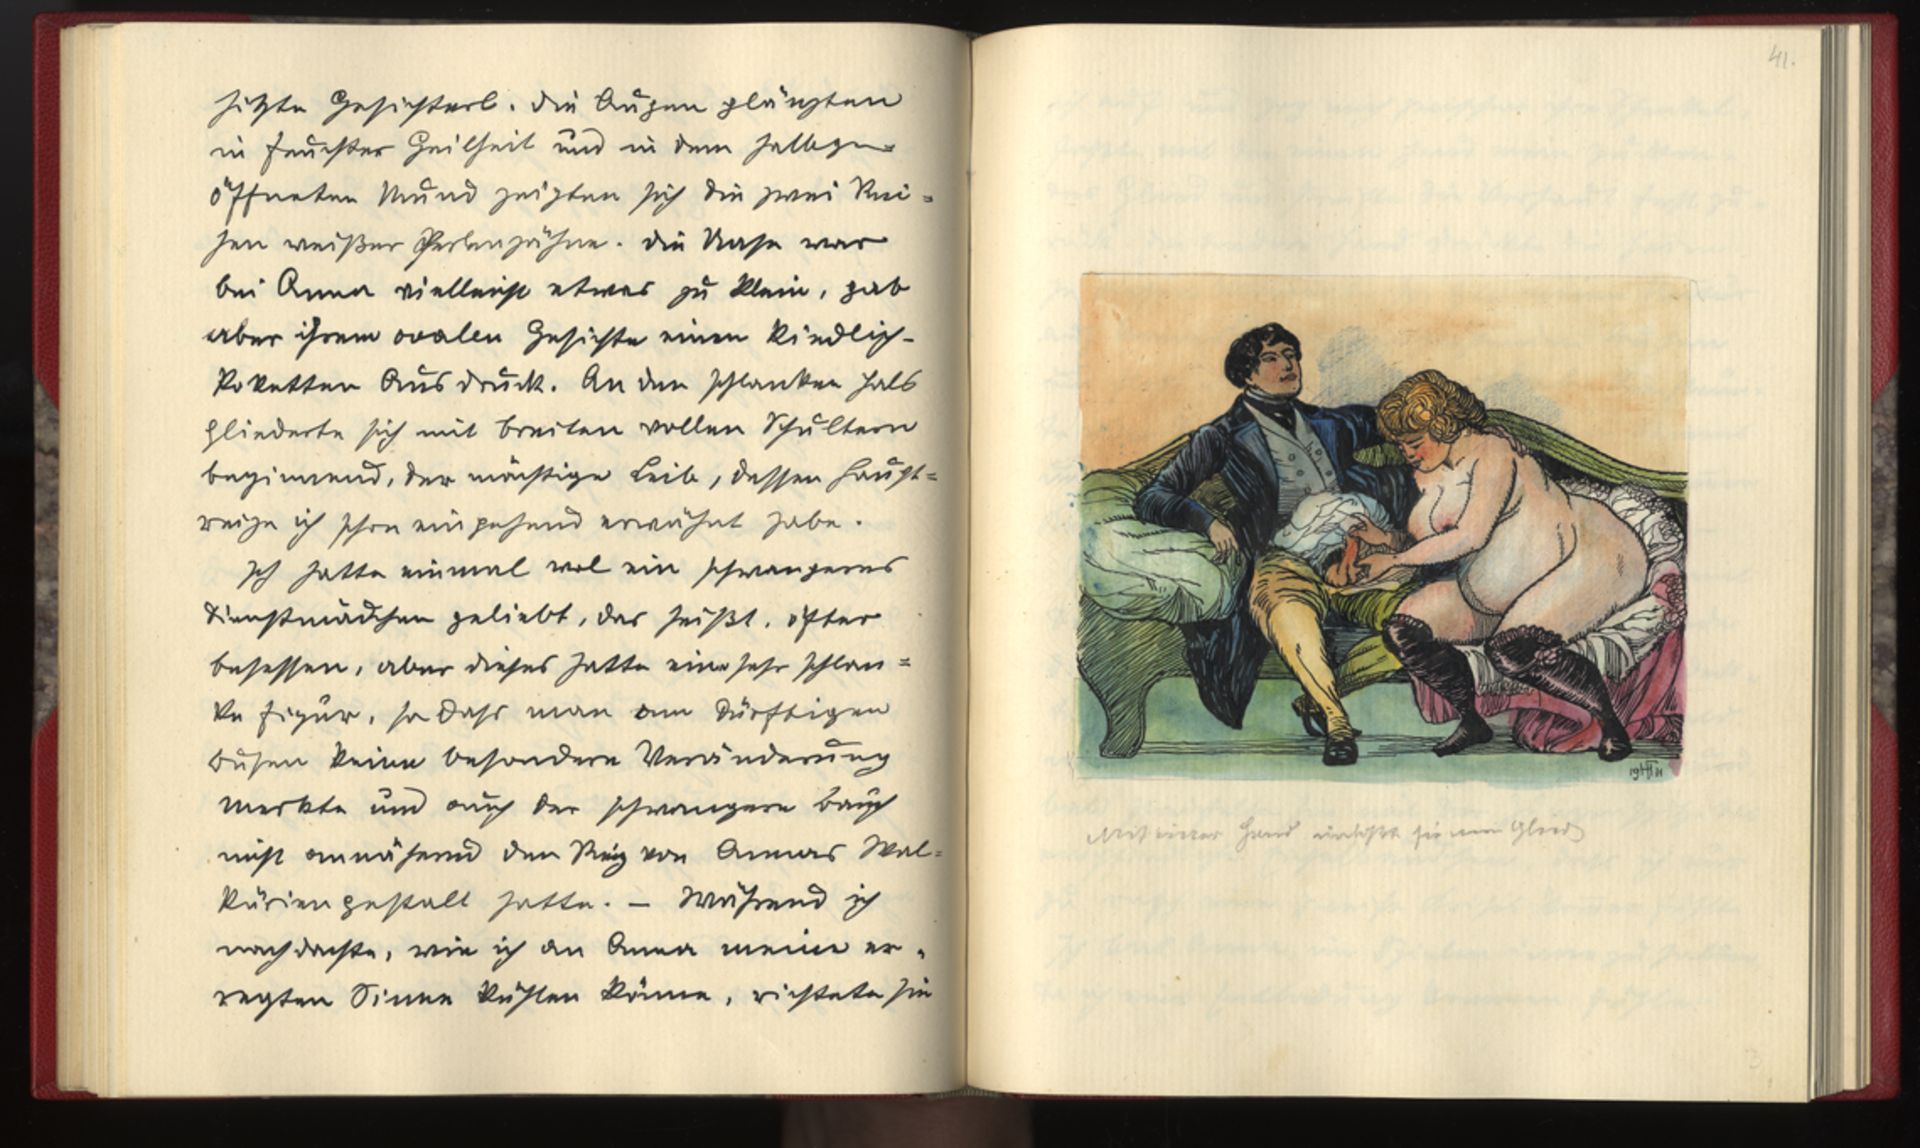 hitzte Gesichterl. Die Augen glänzten
in feuchter Geilheit und in dem halbge-
öffneten Mund zeigten sich die zwei Rei-
hen weißer Perlenzähne. Die Nase war
bei Anna vielleicht etwas zu klein, gab
aber ihrem ovalen Gesichte einen kindlich-
koketten Ausdruck. An den schlanken Hals
gliederte sich mit breiten vollen Schultern
beginnend, der mächtige Leib, dessen Haupt-
reize ich schon eingehend erwähnt habe.
Ich hatte einmal wol ein schwangeres
Dienstmädchen geliebt, das heißt, öfter
besessen, aber dieses hatte eine sehr schlan-
ke Figur, so dass man am dürftigen
Busen keine besondere Veränderung
merkte und auch der schwangere Bauch
nicht annähernd den Reiz von Annas Wal-
kürengestalt hatte. – Während ich
nachdachte, wie ich an Anna meine er-
regten Sinne kühlen könne, richtete sie
41.
Mit einer Hand sie mein Glied